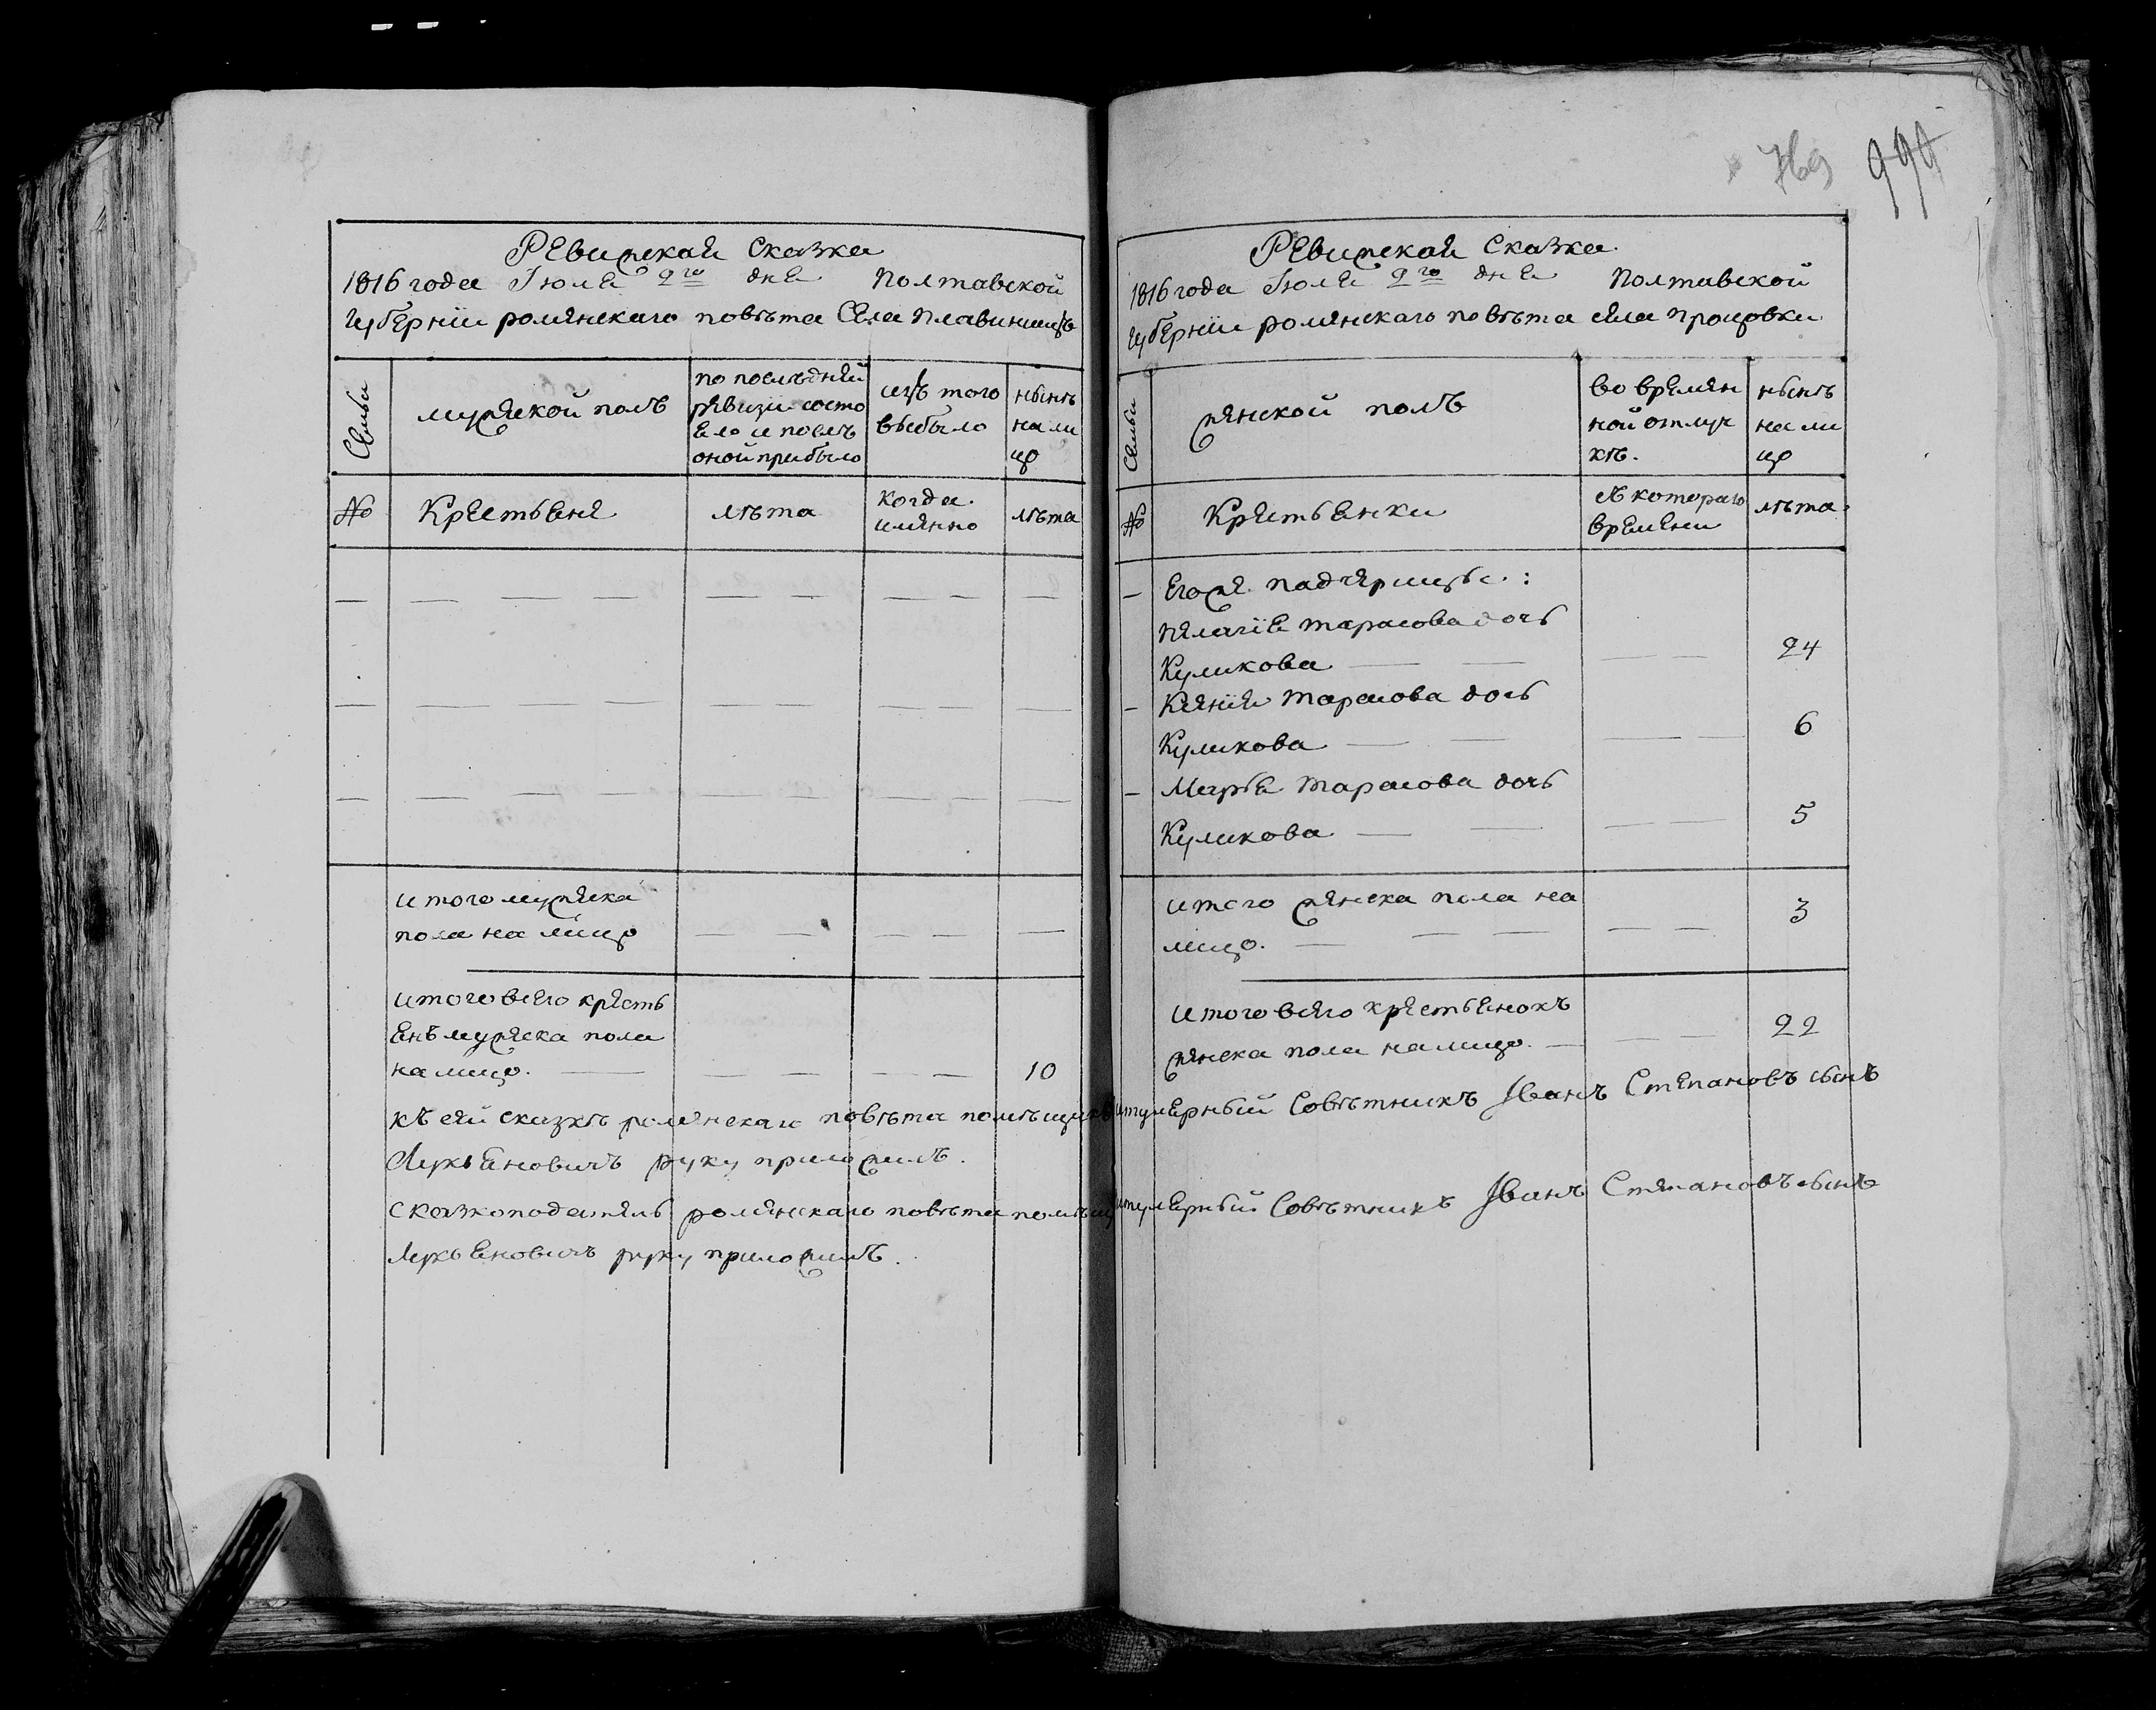 Ревижская Сказка
1816 года Іюля 2го дня Полтавской
Губерніи роменскаго повѣта Села Плавинищъ
Семьи
мужеской полъ
по последней
ревизіи состо
яло и послѣ
оной прибыло
изъ того
выбыло
нынѣ
на ли
цо
№
Крестьяне
лѣта
когда
имянно
лѣта
итого мужеска
пола на лицо
итого всего кресть
янъ мужеска пола
на лицо.
10
994
Ревижская Сказка
1816 года Іюля 2го дня Полтавской
Губерніи роменскаго повѣта села процовки
Семьи
женской полъ
во времян
ной отлуч
кѣ.
нынѣ
на ли
цо
№
Крестьянки
съ котораго
времени
лѣта
Егоже падчерицы:
пелагія тарасова дочь
Куликова
24
Ксенія тарасова дочь
Куликова
6
Марья тарасова дочь
Куликова
5
итого женска пола на
лицо.
3
итого всего крестьянокъ
женска пола на лицо.
22
къ сей сказкѣ роменскаго повѣта помѣщикъ титулярный Совѣтникъ Иванъ Степановъ сынъ
Лукьяновичъ руку приложилъ.
сказкоподатель роменскаго повѣта титулярный Совѣтникъ Иванъ Степановъ сынъ
Лукьяновичъ руку приложилъ.